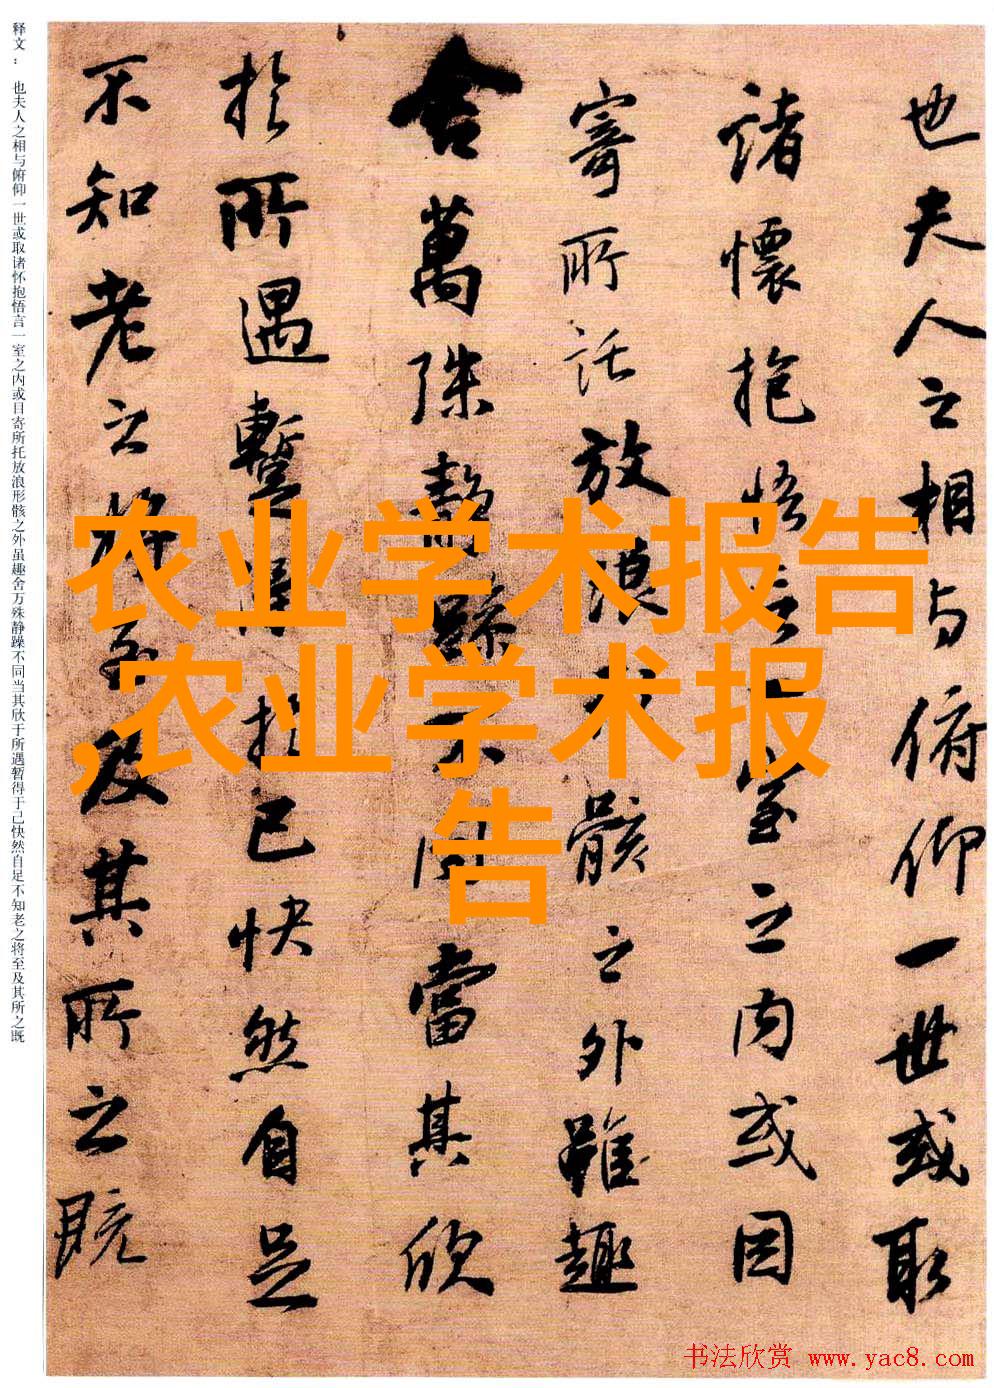 也夫人之相与俯仰一世或取
諸懷抱悟言一室之内或因
寄所託放浪形骸之外雖趣
舍萬殊靜躁不同當其欣
於所遇暫得於己快然自足
不知老之將至及其所之既
释文： 也夫人之相与俯仰一世或取诸怀抱悟言一室之内或目寄所托放浪形骸之外虽趣舍万殊静躁不同当其欣于所遇暂得于己快然自足不知老之将至及其所之既
农业学术报告
,农业学术报
告
书法欣赏 www.yac8.com